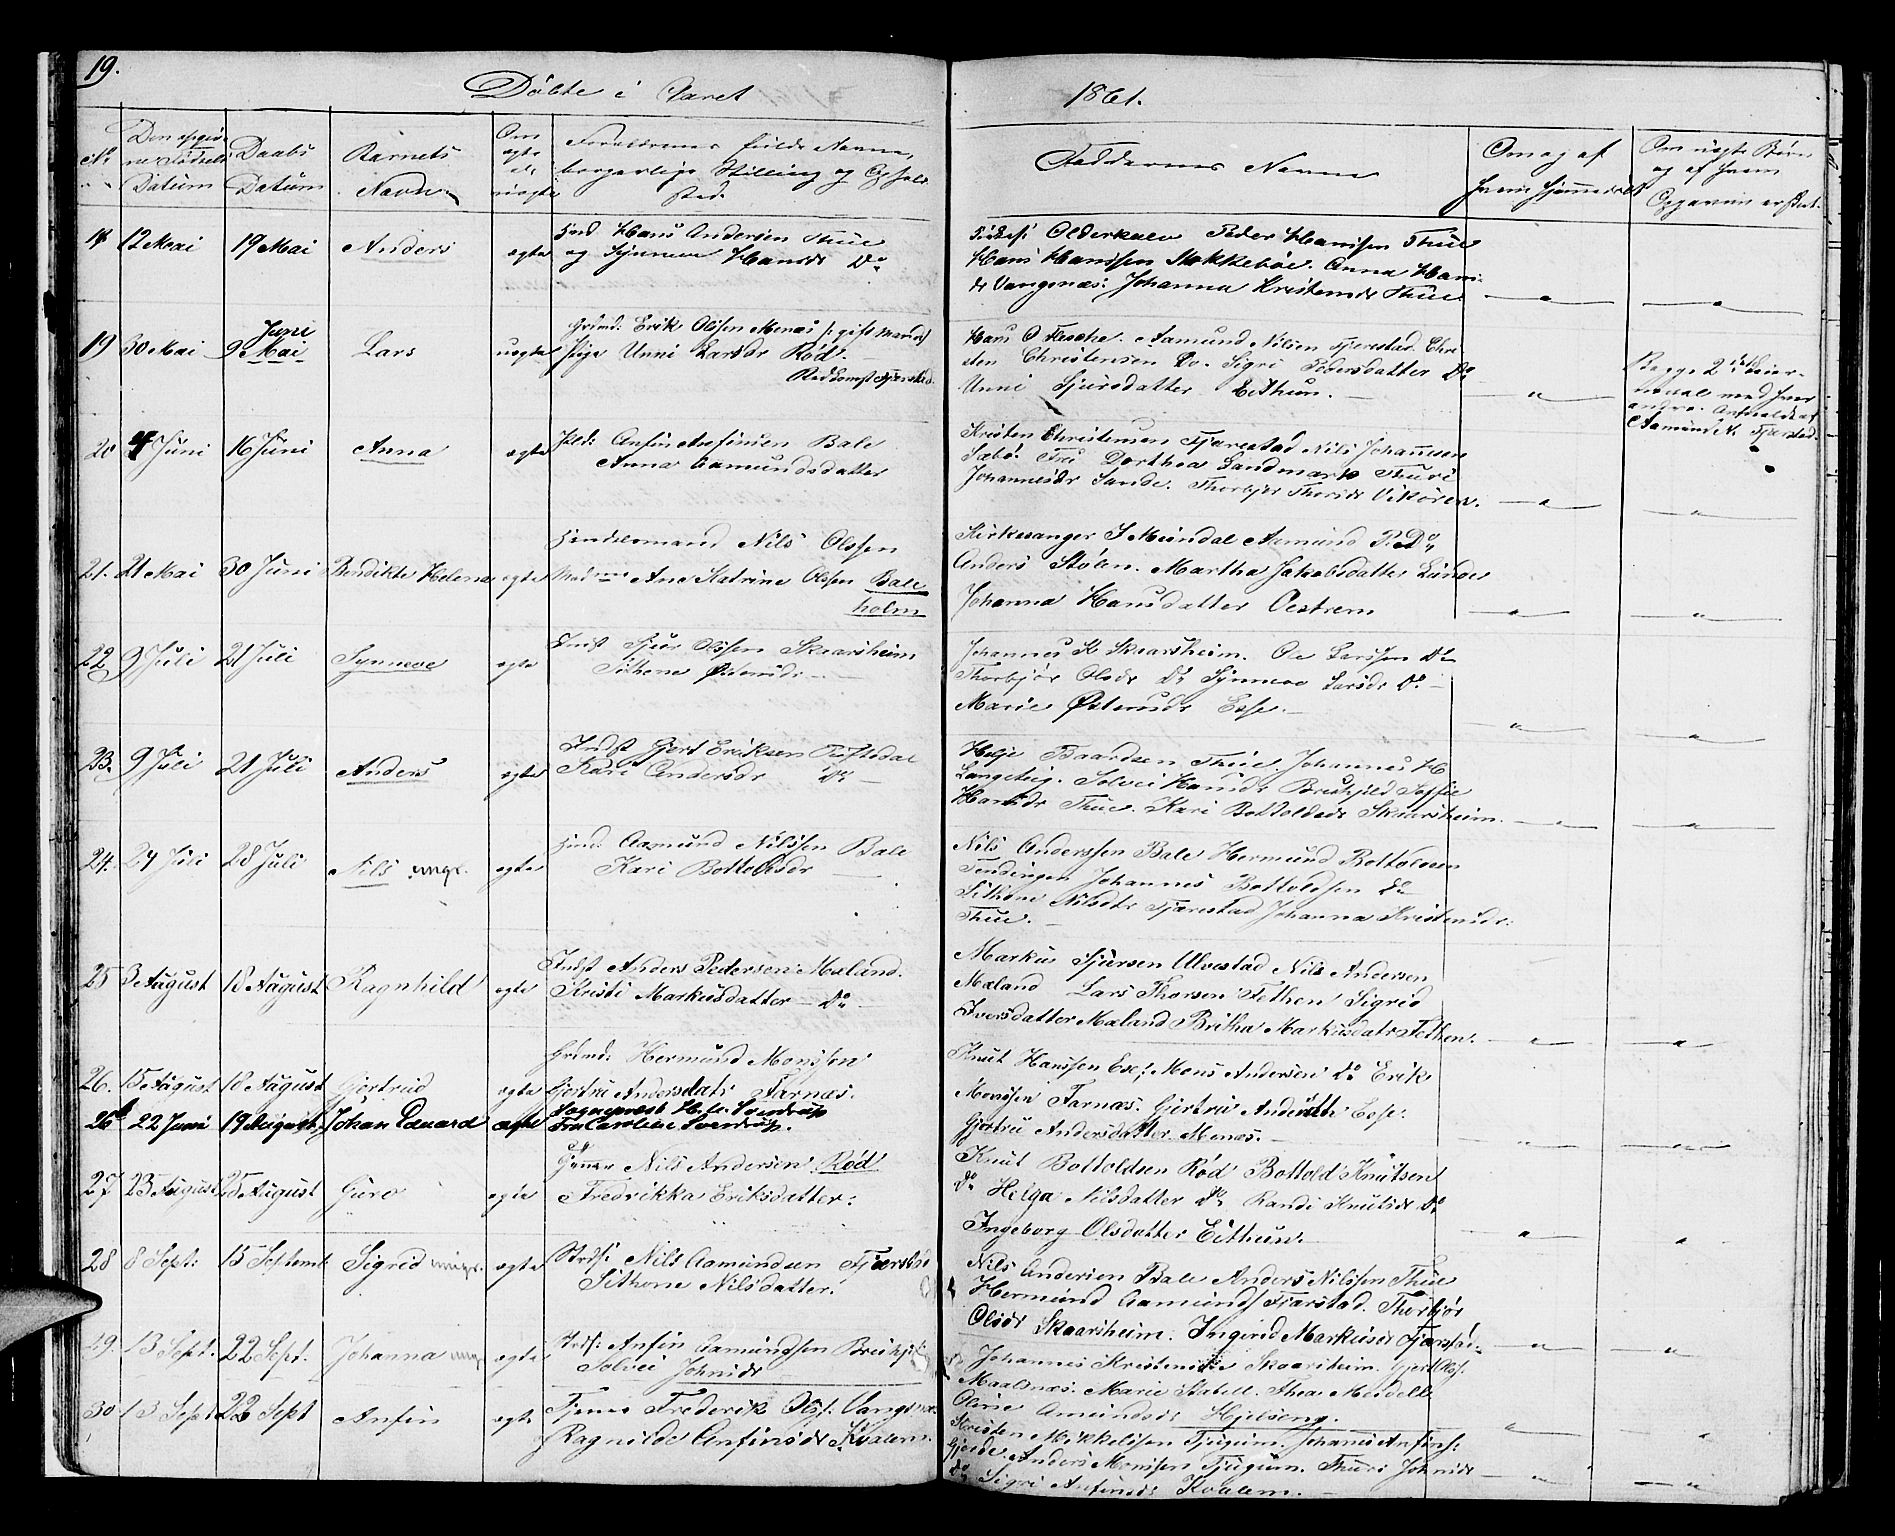 19.
Döbte i Aaret
1861.
No
Datum
Daabs
Datum
Barnets
Navn
Om
ægte
uægte
Forældrenes fulde Navne,
borgerlige Stilling og Ophold
sted.
Faddernes Navne
Om og af
hvem hjemmedöbt
og af hvem
18 12 Mai 19 Mai Anders ægte
Hans Andersen Thue
og Synneve Hansdr Do
Olderkale Peder Hansen Thue
Hans Hanssen Stokkeböe. Anna Hans
dr Vangsnæs. Johanna Kristensdr Thue
19 30 Mai 9 Mai Juni Lars uægte
Grdmd: Erik Olssen Menes /: gift Mand
Pige Unni Larsdr Röd.
Hans O Flesche. Aamund Nilsen Fjærestad. Chri
sten Christensen Do. Sigri Pedersdatter Do
Unni Sjursdatter Eithun.
Begge 2det Leier-
maal med hver
andre. Anmeldt af
Aamund N. Fjærstad.
20 4 Juni 16 Juni Anna ægte
Anfin Anfinsen Bale
Anna Aamundsdatter
Kristen Christensen Fjærestad Nils Johannesen
Sæbö. Frü Dorthea Landmark Thuri
Johannesdr Sande. Thorbjör Thorsdr Vikören.
21. 21 Mai 30 Juni Bendikte Helena ægte
Handelsmand Nils Olssen
Ane Katrine Olsen Bale
holm
Kirkesanger J Meindal Aamund P. Do
Anders Stölen. Martha Jakobsdatter Lunde
Johanna Hansdatter Oestrem
22 9 Juli 21 Juli Synneve ægte
Sjur Olssen Skaarsheim
Sithone Östensdr
Johannes K Skaarsheim. Ole Larssen Do
Thorbjör Olsdr Do Synneve Larsdr Do
Marie Östensdr Esse.
23. 9 Juli 21 Juli Anders ægte
Gjert Eriksen Tuftedal
Kari Andersdr Do
Helje Baardsen Thue. Johannes H
Langeteig. Solvei Hansdr Breskjeld Soffie
Hansdr Thue. Kari Bottoldsdr Skaarsheim.
24. 24 Juli 28 Juli Nils ægte
Aamund Nilssen Bale
Kari Bottolfsdr
Nils Anderssen Bale Hermund Bottolvsen
Tendingen Johannes Bottolfsen Do
Sithone Nilsdtr Fjærestad Johanna Kristensdr.
Thue.
25 3 August 18 August Ragnhild ægte
Anders Pedersen Mæland.
Kristi Markusdatter Do
Markus Sjursen Ulvestad Nils Andersen
Mæland Lars Thorsen Fethen Sigrid
Iversdatter Mæland Britha Markusdatr Fethen.
26. 15 August 18 August Gjertrud ægte
Grdmd: Hermund Monssen
Gjertru Andersdatr Farnæs.
Knut Hanssen Ese; Mons Andersen Do Erik
Monssen Farnæs. Gjertru Andersdtr Esse:
Gjertru Andersdatter Menæs.
26b 22 Juni 19 August Johan Eduard ægte
Sogneprest H. Sverdrup
Fru Caroline Sverdrup.
27 23 August 25 August Guro ægte
Nils Andersen Röd
Fredrikka Eriksdatter.
Knut Bottoldsen Röd Bottold Knutsen
Do Helga Nilsdatter Do Randi Knutsdr Do
Ingeborg Olsdatter Eithun.
28 8 Sept: 15 Septemb Sigrid ægte
Nils Aamundsen Fjærstad
Sithone Nilsdatter.
Nils Andersen Bale Anders Nilssen Thue
Hermund Aamunds Fjærstad. Thorbjör
Olsdr Skaarsheim. Ingerid Markusdr Fjærstad
29. 13 Sept. 22 Sept. Johanna ægte
Anfin Aamundssen Breskjeld
Solvei Johnsdr
Johannes Kristensen Skaarsheim. Gjert Olsf.
Maalsnæs. Marie Stabell. Thea Meidell
Oline Amundsdr Hjelseng.
30 13 Sept 22 Sept Anfin ægte
Tjener Frederik Olss: Vangsnæs.
Ragnilde Anfinsdr Kvalem.
Kristen Mikkelssen Tjugum. Johannes Anfins:
Gjerde. Anders Monssen Tjugum. Thuri Johnsdr
Do Sigri Anfinsdr Kvalem.